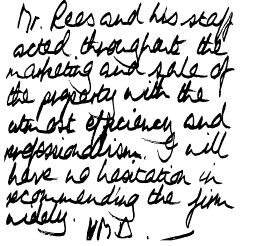 Mr. Rees and his staff
acted throughout the
marketing and sale of
the property with the
utmost efficiency and
professionalism. I will
have no hesitation in
recommending the firm
widely. VMD.